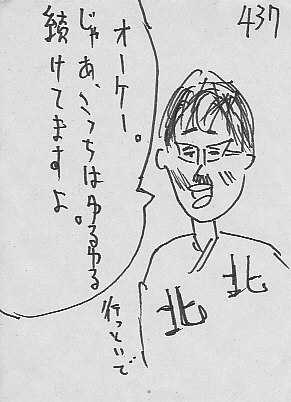 437
オーケー。
じゃあ、こっちはゆるゆる
続けてますよ。
行っといで
北
北